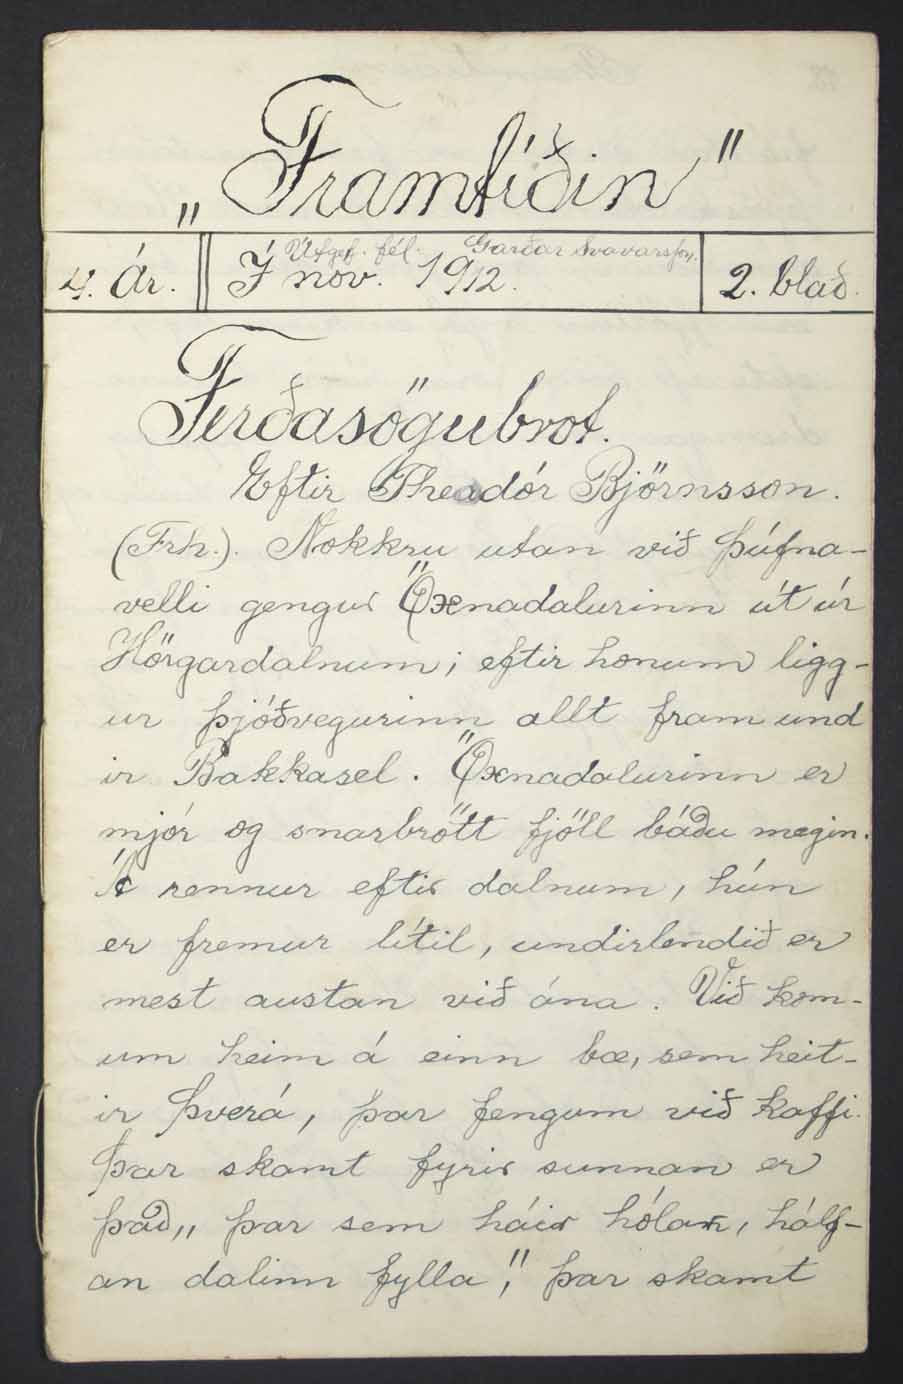 „Framtíðin"
4. Ár.
Útgef. fél. Garðar Svavarsson.
Í nov. 1912.
2. blað.
Ferðasögubrot.
Eftir Theadór Björnsson.
(Frh.). Nokkru utan við Þúfna-
velli gengur Öxnadalurinn út úr
Hörgardalnum; eftir honum ligg-
ur þjóðvegurinn allt fram und
ir Bakkasel. Öxnadalurinn er
mjór og snarbrött fjöll báðu megin.
Á rennur eftir dalnum, hún
er fremur lítil, undirlendið er
mest austan við ána. Við kom-
um heim á einn bæ, sem heit-
ir Þverá, þar fengum við kaffi.
Þar skamt fyrir sunnan er
það „þar sem háir hólar, hálf-
an dalinn fylla", þar skamt